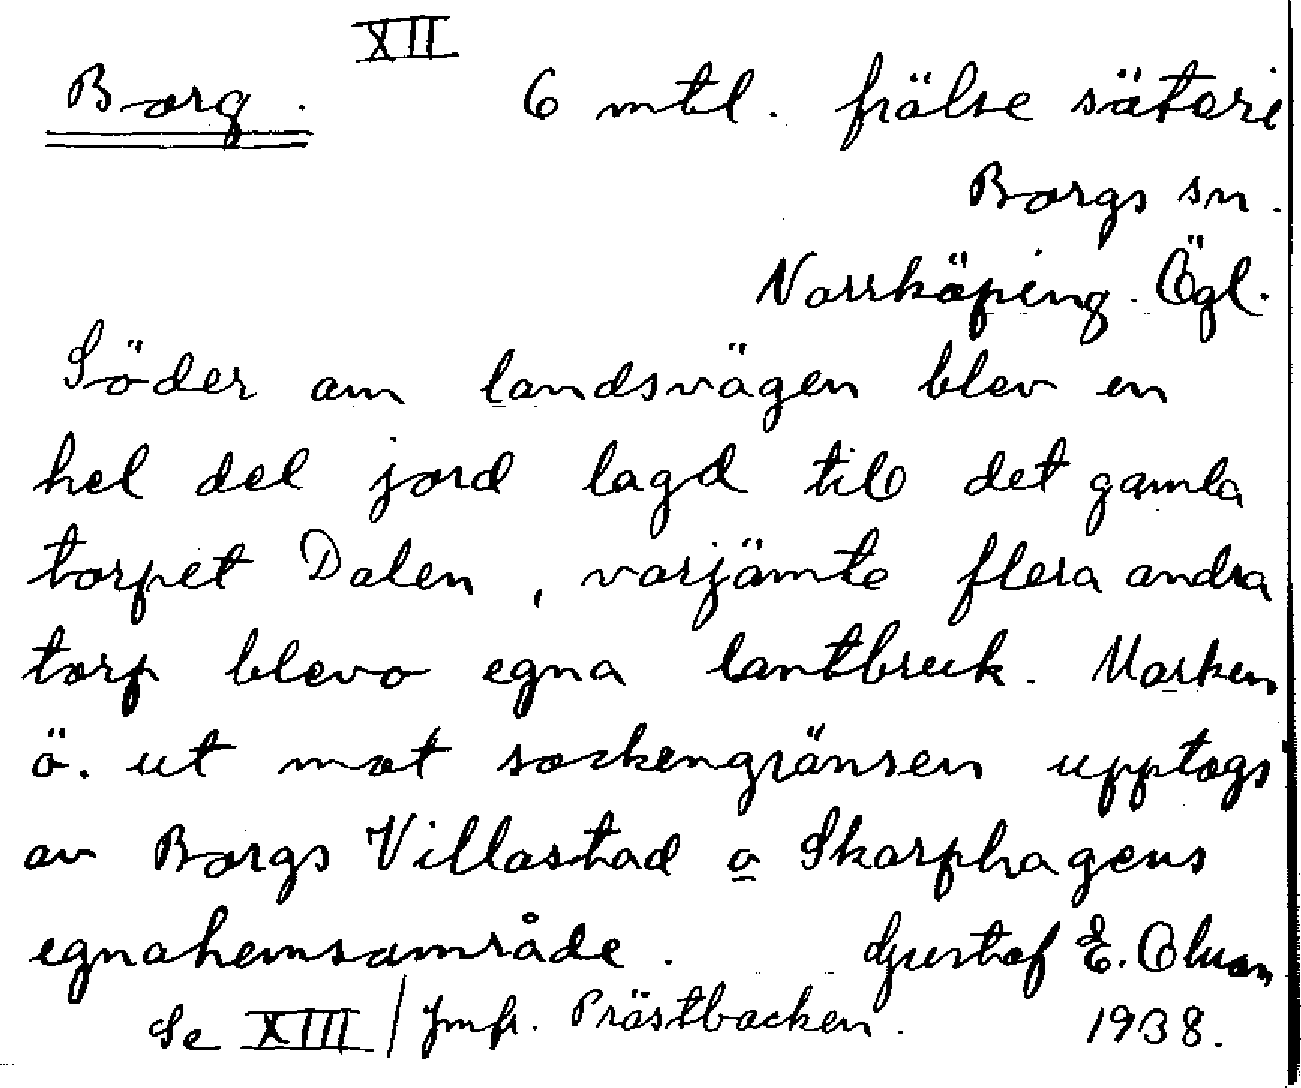 XII
Borg. 6 mtl. frälse säteri
Borgs sn.
Norrköping. Ögl.
Söder om landsvägen blev en
hel del jord lagd till det gamla
torpet Dalen, varjämte flera andra
torp blevo egna lantbruk. Marken
ö. ut mot sockengränsen upptogs
av Borgs Villastad o Skarphagens
egnahemsområde. Gustaf E. Olson
Se XIII / Jmfr. Prästbacken. 1938.